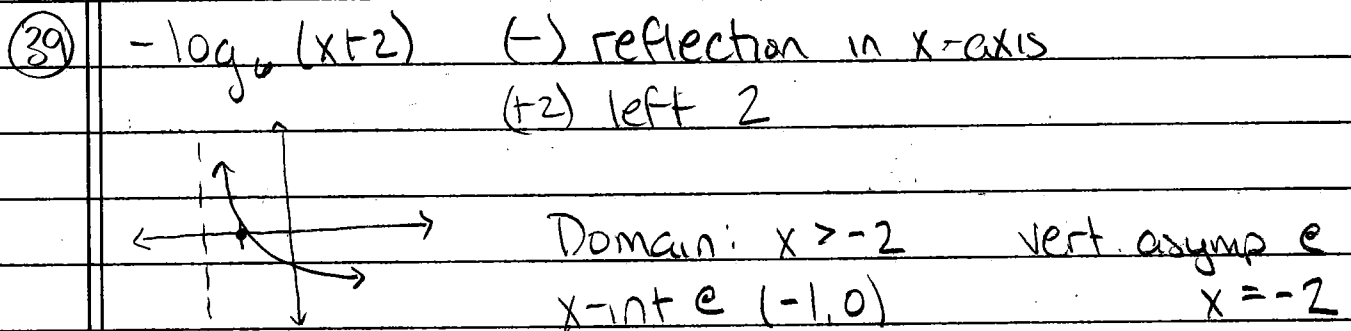 39 -log₆ (x+2) (-) reflection in x-axis
(+2) left 2
Domain: x > -2 vert. asymp @
x-int @ (-1,0) x = -2